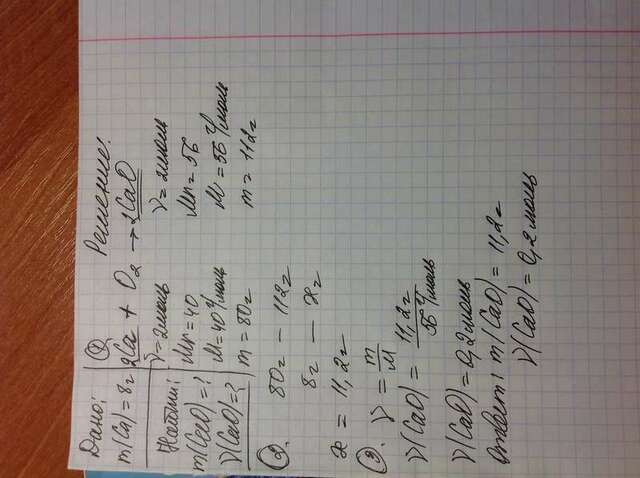 Дано:
m(Ca) = 8г
Найти:
m(CaO) = ?
ν(CaO) = ?
Решение:
① 2Ca + O₂ → 2CaO
ν = 2моль ν = 2моль
Mr = 40 Mr = 56
M = 40 г/моль M = 56 г/моль
m = 80г m = 112г
②. 80г — 112г
8г — xг
x = 11,2г
③. ν = m/M
ν(CaO) = 11,2г/56 г/моль
ν(CaO) = 0,2моль
Ответ: m(CaO) = 11,2г
ν(CaO) = 0,2 моль